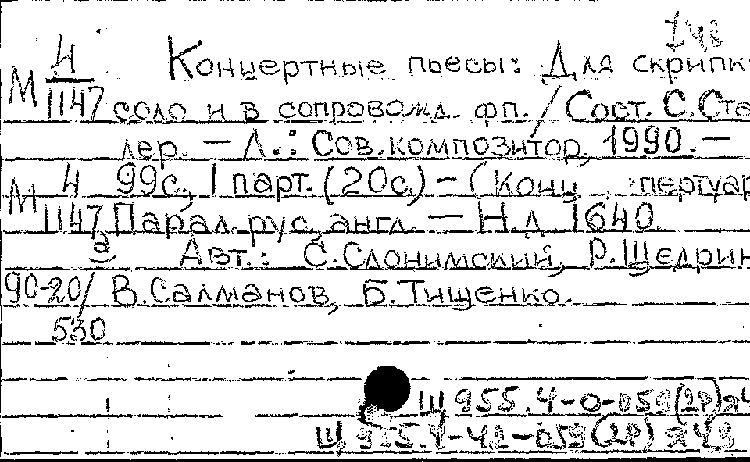 148
Н Концертные пьесы: Для скрипк
М 1147 соло и в сопровожд. фп. / Сост. С. Сте
лер. — Л.: Сов. композитор, 1990. —
М Н 99с, 1 парт. (20с) – (Конц пертуар
1147 Парал. рус, англ. — Н.д 1640.
а Авт.: С. Слонимский, Р. Щедрин
90-20/ В. Салманов, Б. Тищенко.
530
Щ 955.4-0-059(2Р)я4